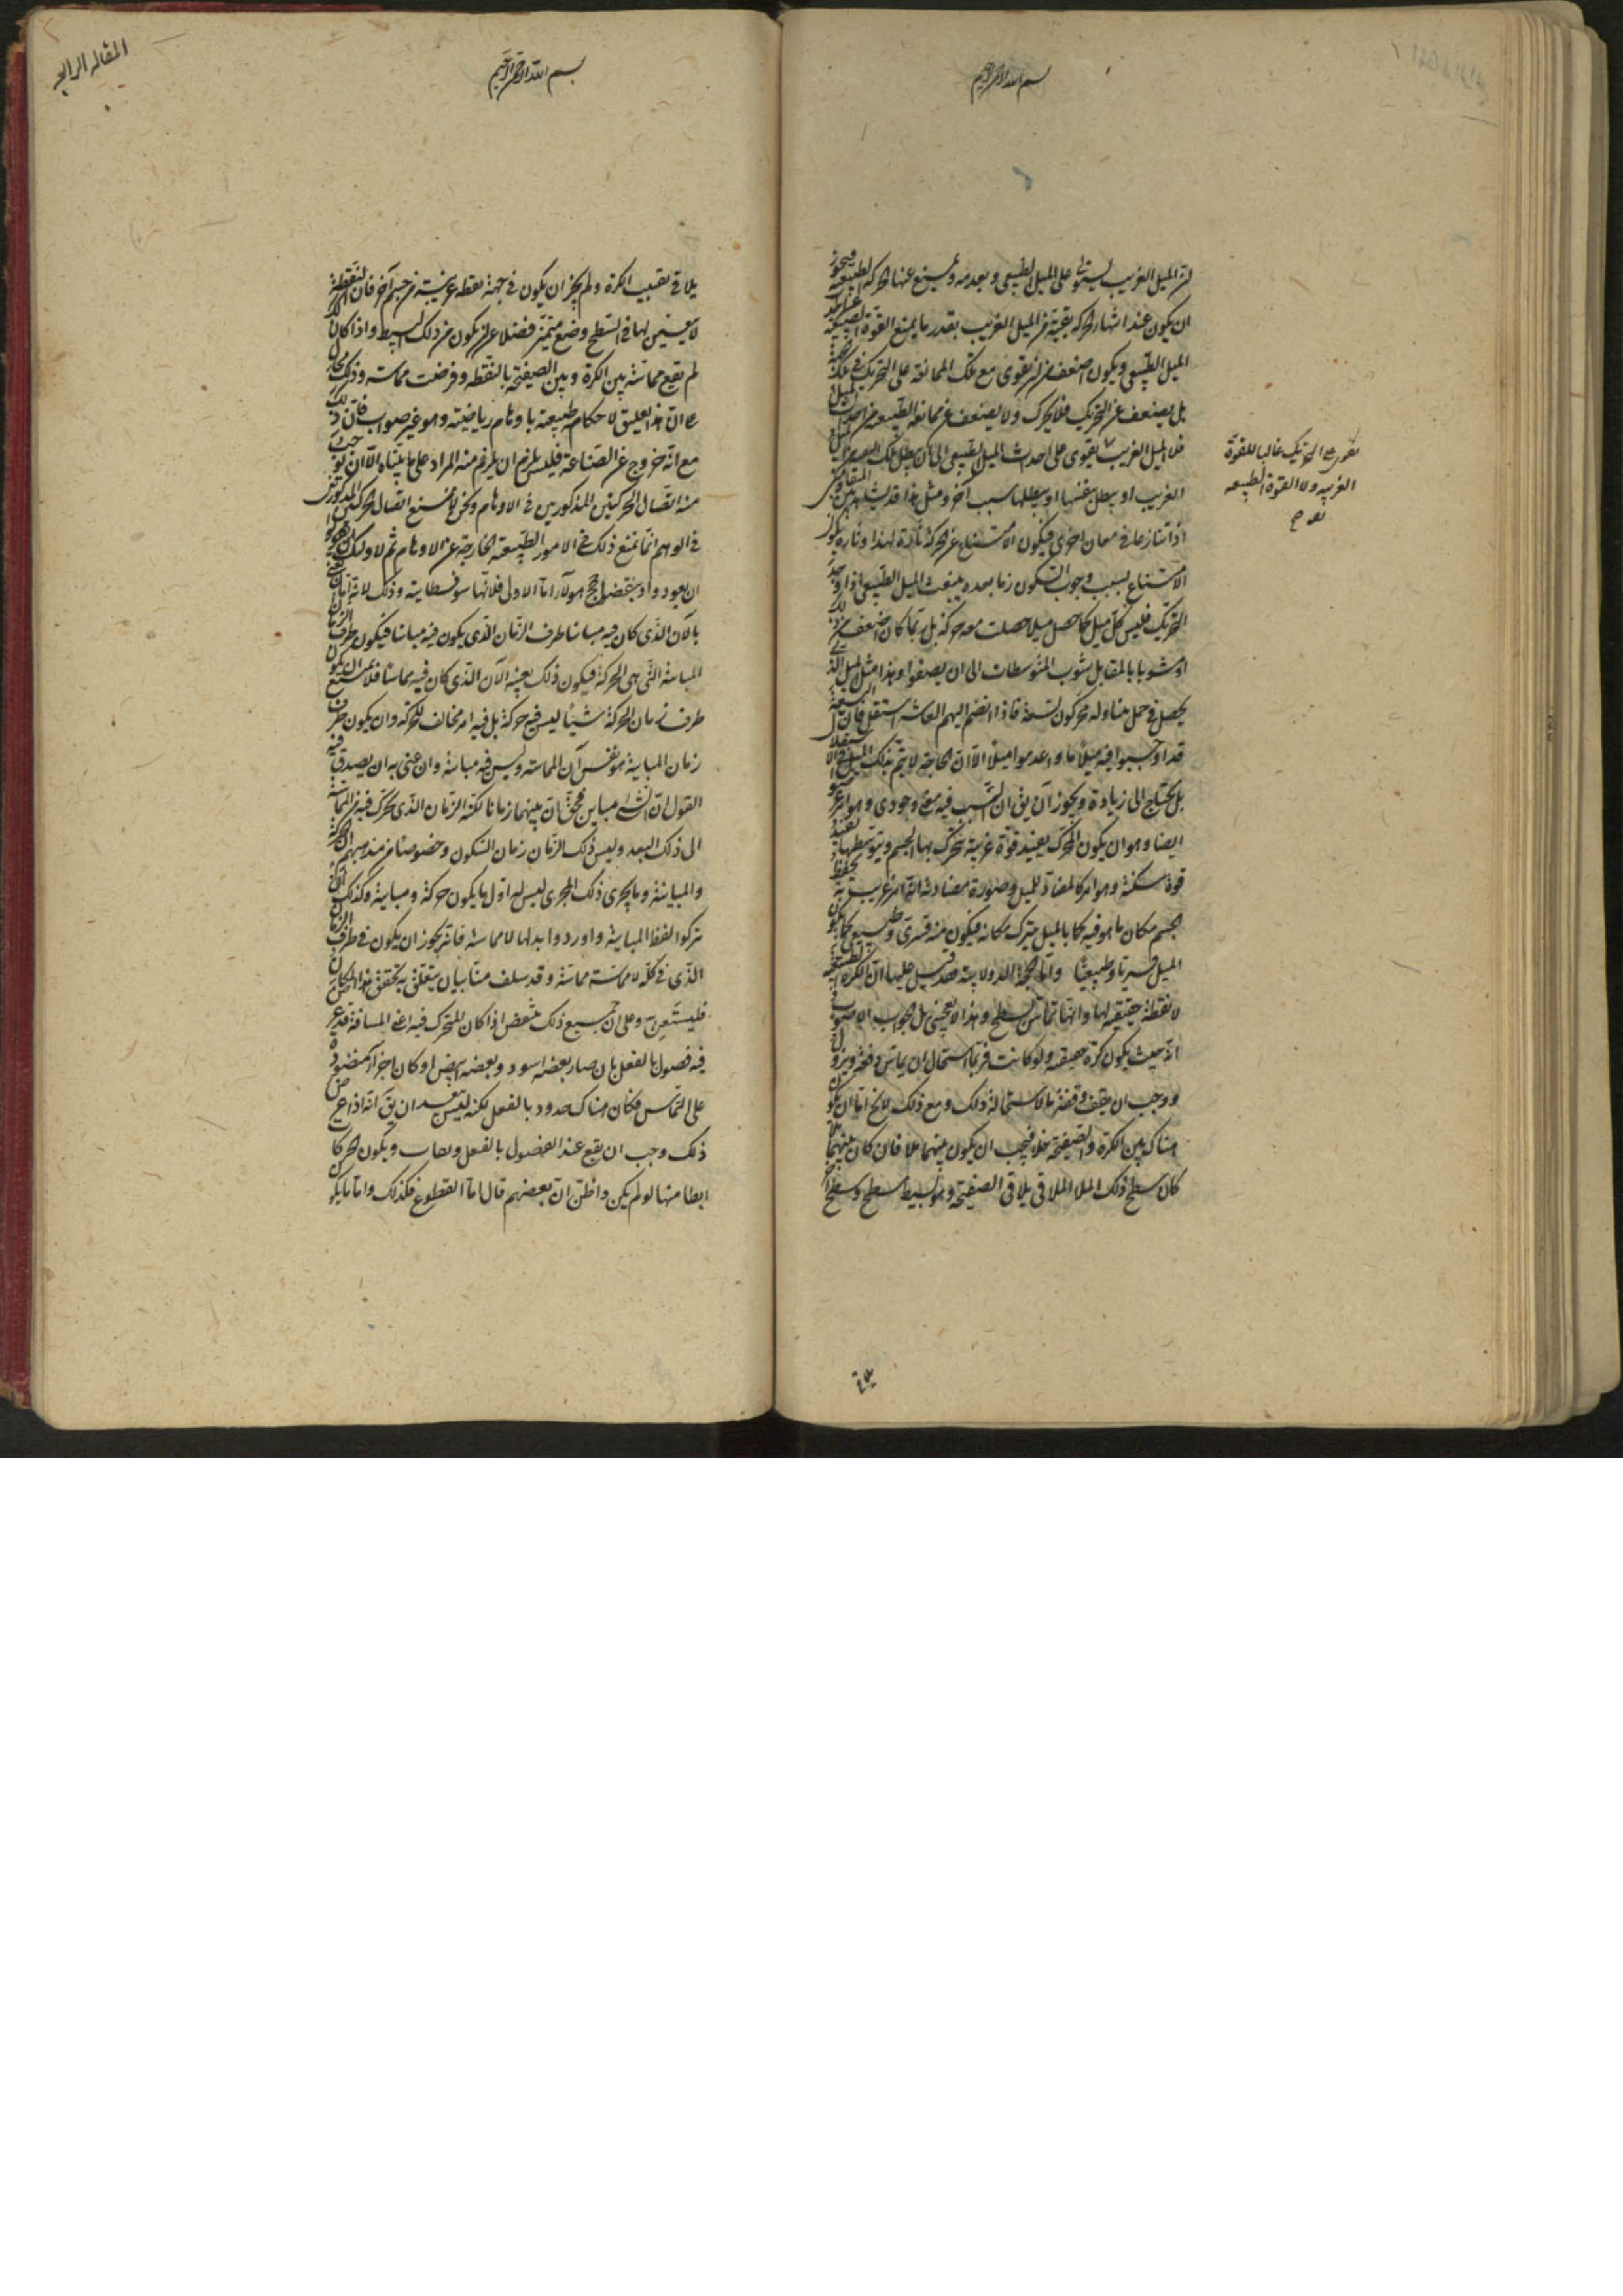 بسم الله الرحمن الرحيم
ان الميل الغريب يستولى على الميل الطبيعى ويعدمه ويمنع عنها الحركة الطبيعية فيجوز
ان يكون عند انتهاء الحركة بقية من الميل الغريب بقدر ما يمنع القوة الطبيعية عن احداث
الميل الطبيعى ويكون اضعف من ان يقوى مع تلك الممانعة على التحريك فى تلك الجهة
بل يضعف عن التحريك فلا يحرك ولا يضعف عن ممانعة الطبيعة عن احداث الميل
فلا الميل الغريب يقوى على احداث الميل الطبيعى الى ان يبطل تلك البقية
الغريب او يبطل بنفسها او يبطلها سبب آخر ومثل هذا قد يشاهد بين المتقاومين
اذا تنازعا فى معان اخرى فيكون الامتناع عن الحركة تارة لهذا وتارة يكون
الامتناع بسبب وجوب السكون زمانا بعده ينبعث الميل الطبيعى اذا وجد
التحريك فليس كل ميل كما حصل ميلا حصلت معه حركة بل ربما كان اضعف من ذلك
او مشوبا بالمقابل شوب المتوسطات الى ان يصفوا وهذا مثل الميل الذى
يحصل فى حمل يتناوله محركون تسعة فاذا انضم اليهم العاشر استقل فان التسعة
قد اوجبوا فيه ميلا ما واعدموا ميلا الا ان الحاجة لا يتم بذلك المبلغ
بل يحتاج الى زيادة ويجوز ان يق ان السبب فيه معنى وجودى وهو امر غريب
ايضا وهو ان يكون المحرك يفيد قوة غريبة يتحرك بها الجسم وبتوسطها يفيد
قوة مسكنة وهو امر كالمضاد للميل وصورة مضادته انه امر غريب به يحفظ
الجسم مكان ما هو فيه كما بالميل يترك مكانه فيكون منه قسرى وطبيعى كما يكون
الميل قسريا وطبيعيا واما الحجة الدولابية فقد قيل عليها ان الكرة الطبيعية
لا نقطة حقيقية لها وانها تماس بسطح وهذا لا يعجبنى بل الجواب الاصوب
انه حيث يكون كرة حقيقية ولو كانت فربما استحال ان يماس دفعة ويزول
ووجب ان يقف وقفة ما لاستحالة ذلك ومع ذلك لا يخ اما ان يكون
هناك بين الكرة والصفيحة خلا فيجب ان يكون بينهما ملا فان كان بينهما ملا
كان سطح ذلك الملا الملاقى يلاقى الصفيحة وهو بسيط سطح وسطح آخر
يقوى على التحريك غالبا للقوة
الغريبة ولا القوة الطبيعة
بسم الله الرحمن الرحيم
المقاله الرابعه
يلاقى تقبيب الكرة ولم يجز ان يكون فى جهة نقطة غريبة من جسم آخر فان النقطة
لا يتعين لها فى السطح وضع متميز فضلا عن ان يكون من ذلك البسيط واذا كان
لم يقع مماسة بين الكرة وبين الصفيحة بالنقطة وفرضت مماسة وذلك محال
على ان هذا تعليق لاحكام طبيعية باوهام رياضية وهو غير صواب فان ذلك
مع انه خروج عن الصناعة فليس يلزم ان يلزم منه المراد على ما بيناه الا ان يوجب
منه اتصال الحركتين المذكورين فى الاوهام ونحن لا نمنع اتصال الحركتين المذكورتين
فى الوهم انما نمنع ذلك فى الامور الطبيعية الخارجة عن الاوهام ثم لاولئك
ان يعودوا وينقضوا حجج هولاء اما الاولى فلانها سوفسطائية وذلك لانه اما
بالآن الذى كان فيه مباينا طرف الزمان الذى يكون فيه مباينا فيكون طرف الزمان
المباينة التى هى الحركة فيكون ذلك بعينه الآن الذى كان فيه مماسا فلا يمتنع ان يكون
طرف زمان الحركة شيئا ليس فيه حركة بل فيه امر مخالف للحركة وان يكون طرف
زمان المباينة هو نفس آن المماسة وليس فيه مباينة وان عنى به ان يصدق فيه
القول ان الشئ مباين فحق ان بينهما زمانا لكنه الزمان الذى تحرك فيه من المماسة
الى ذلك البعد وليس ذلك الزمان زمان السكون وخصوصا من مذهبهم ان الحركة
والمباينة وما يجرى ذلك المجرى ليس له اول ما يكون حركة ومباينة وكذلك ان
تركوا لفظ المباينة واوردوا بدلها لا مماسة فانه يجوز ان يكون فى طرف الزمان
الذى فى كله لا مماسة مماسة وقد سلف منا بيان يتعلق به تحقيق هذا المكان
فليستعن به وعلى ان جميع ذلك ينتقض اذا كان المتحرك فيه اعنى المسافة قد عرض
فيه فصول بالفعل بان صار بعضه اسود وبعضه ابيض او كان اجزاء منضودة
على التماس فكان هناك حدود بالفعل لكنه ليس يبعد ان يق انه اذا عرض
ذلك وجب ان يقع عند الفصول بالفعل وقفات ويكون الحركة
ابطا منها لو لم يكن واظن ان بعضهم قال اما القطوع فكذلك واما ما يكون